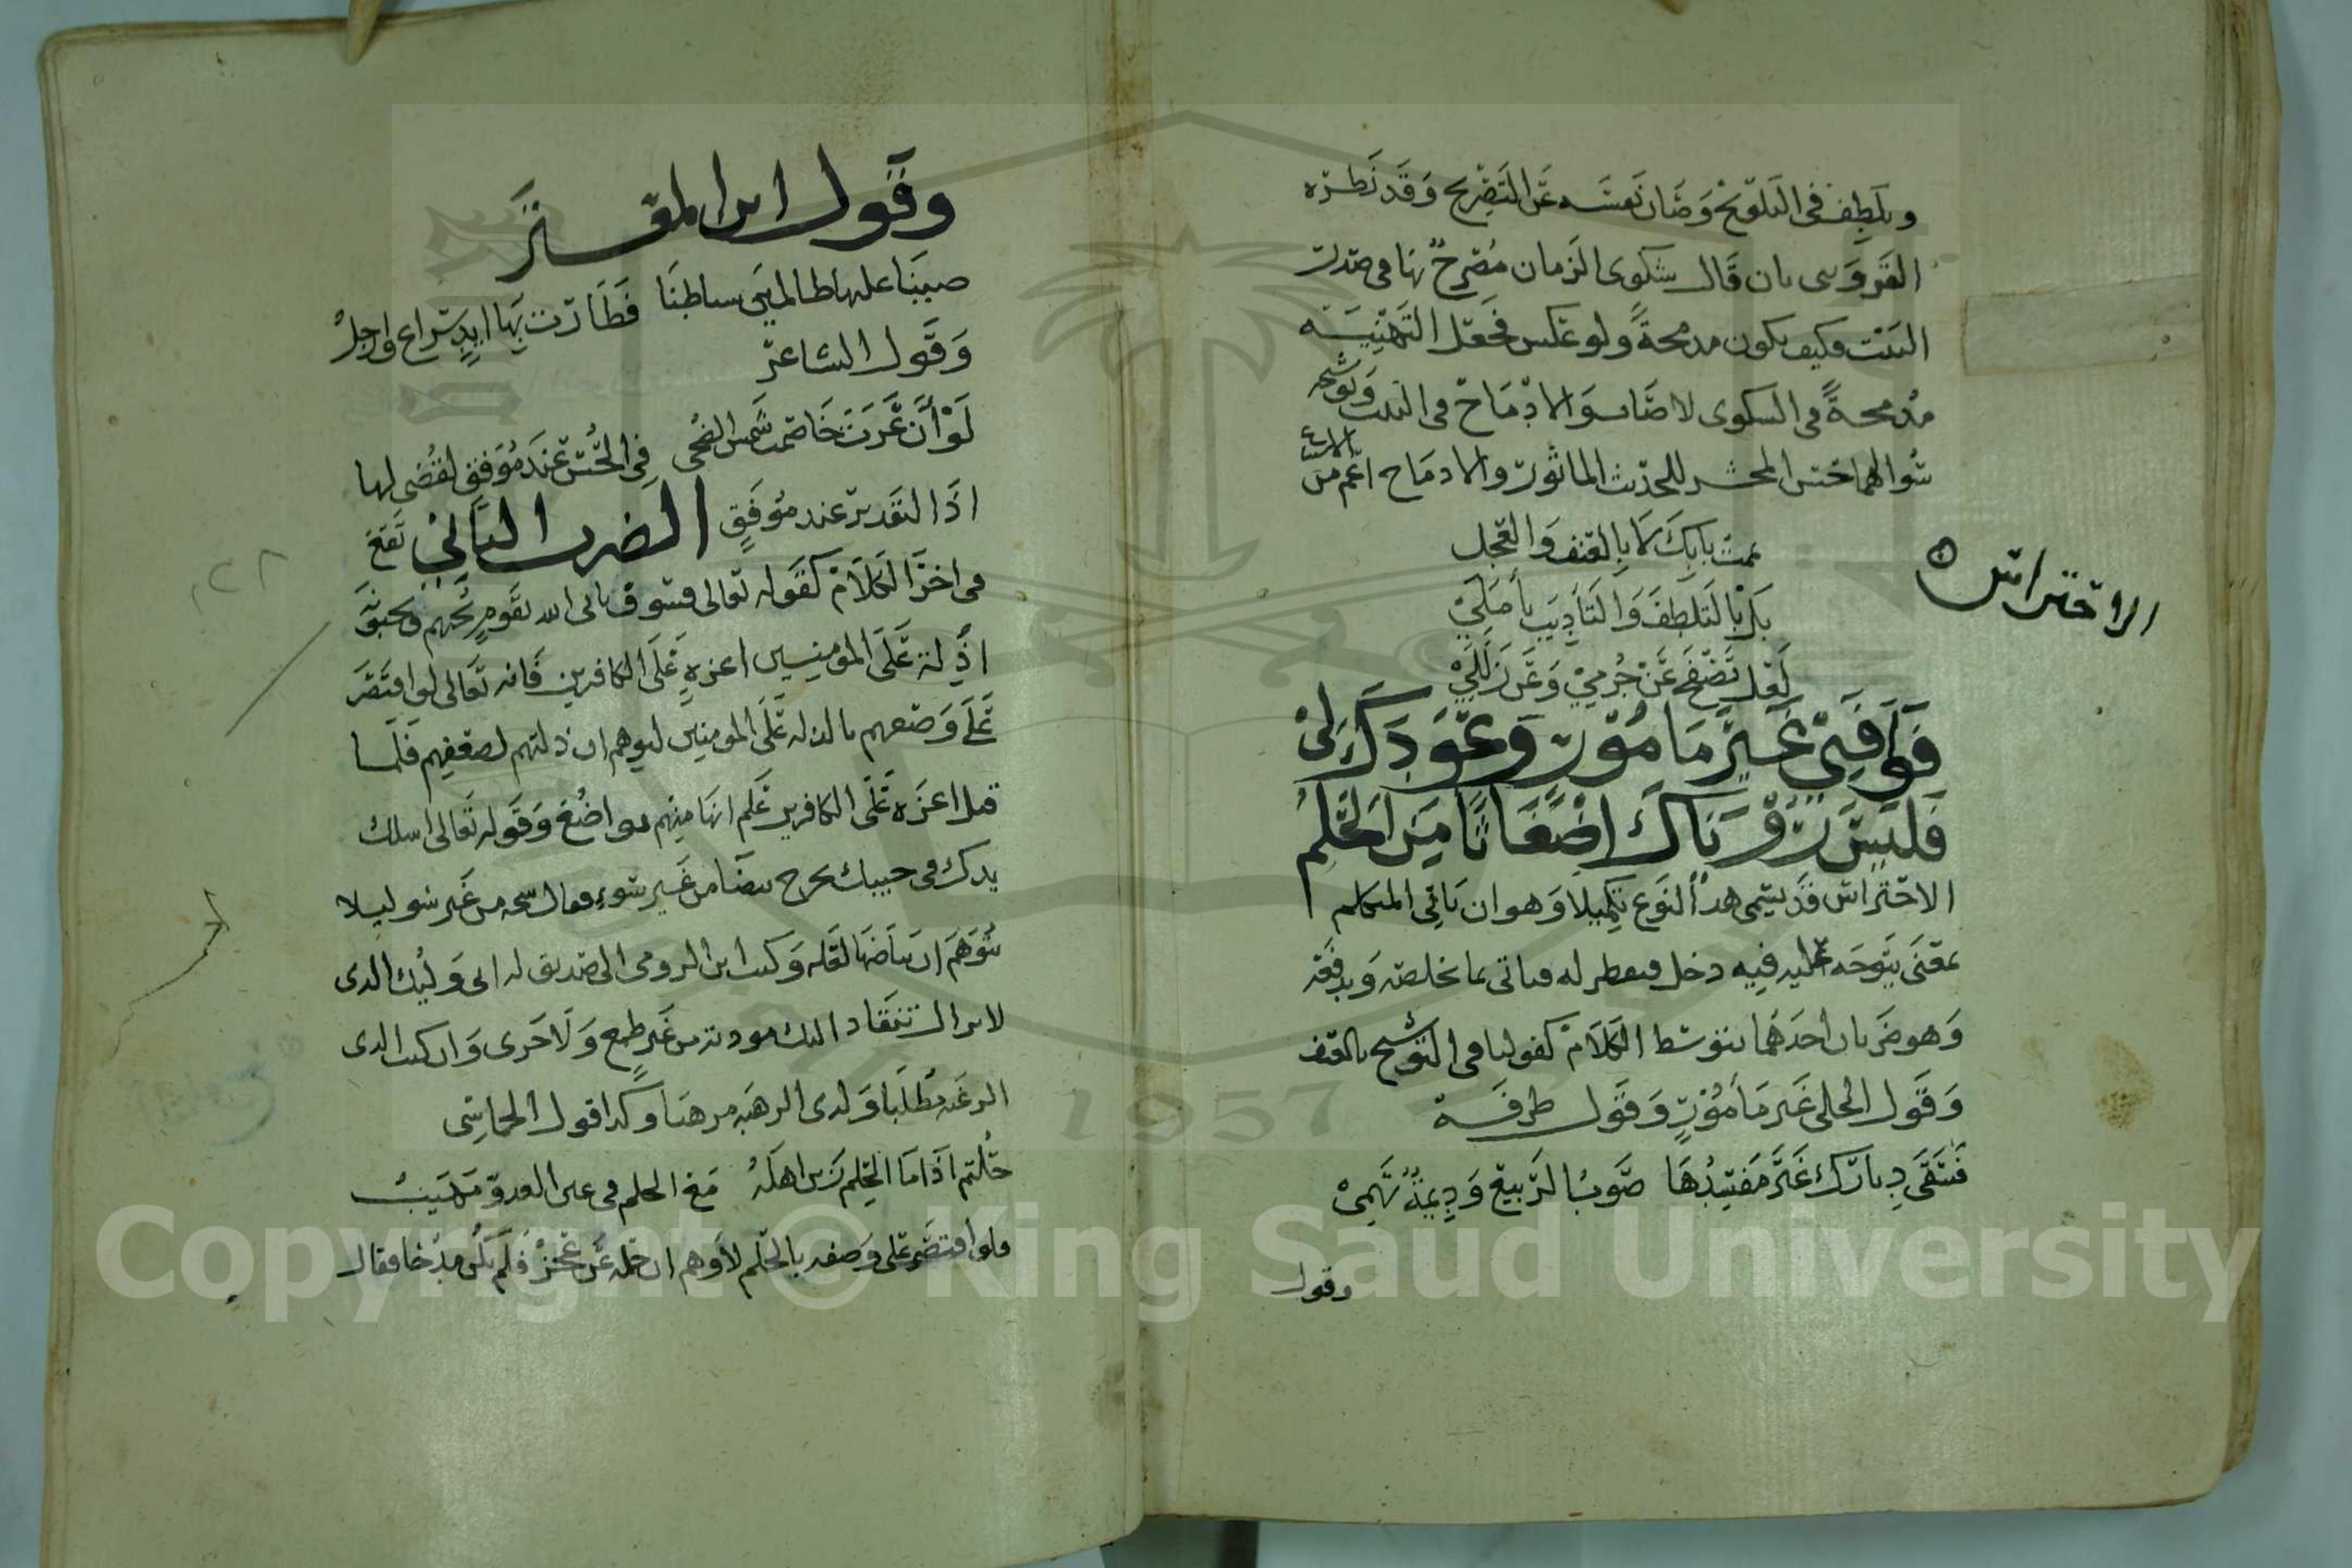 وتلطف فى التلويح وصان نفسه عن التصريح وقد نظره
بان قال شكوى الزمان مصرح بها فى صدر
البيت وكيف يكون مدمجة ولو عكس فجعل التهنيه
مدمجة فى الشكوى لاصاب والادماج فى البيت
الماثور والادماج اعم من
عمت بابك لا بالعنف والعجل
بل بالتلطف والتأديب يأملي
لعل تصفح عن جرمي وعن زللي
الاحتراس
فوافني غير مامور وعودك لى
فليس رؤياك اضغاثا من الحلم
الاحتراس قد يسمى هذا النوع تكميلا وهو ان ياتى المتكلم
بمعنى يتوجه عليه فيه دخل فيفطن له فياتى بما يخلصه ويدفعه
وهو ضربان احدهما يتوسط الكلام كقولنا فى التوشيح بالعنف
وقول الحلى غير مأمور وقول طرفة
فسقى ديارك غير مفسدها صوب الربيع وديمة تهمى
وقول
وقول ابن المعتز
صببنا عليها ظالمين سياطنا فطارت بها ايد سراع وارجل
وقول الشاعر
لو أن عزت خاصمت شمس الضحى فى الحسن عند موفق لقضى لها
اذا التقدير عند موفق الضرب الثاني تقع
فى اخر الكلام كقوله تعالى فسوف ياتى الله بقوم يحبهم ويحبونه
اذلة على المومنين اعزة على الكافرين فانه تعالى لو اقتصر
على وصفهم بالذله على المومنين ليوهم ان ذلتهم لضعفهم فلما
قيل اعزه على الكافرين علم انها منهم تواضع وقوله تعالى اسلك
يدك فى جيبك تخرج بيضا من غير سوء من غير سو ليلا
يتوهم ان بياضها لعله وكتب ابن الرومى الى صديق له انى وليك الذى
لا يزال تنقاد اليك مودته من غير طمع ولا حرى وان كنت لذى
الرغبه مطلبا ولدى الرهبه مرهبا وكذا قول الحماسى
حليم اذا ما الحلم زين اهله مع الحلم فى عين العدو مهيب
ولو اقتصر على وصفه بالحلم لأوهم ان حلمه عن عجز فلم يكن مدحا فقال